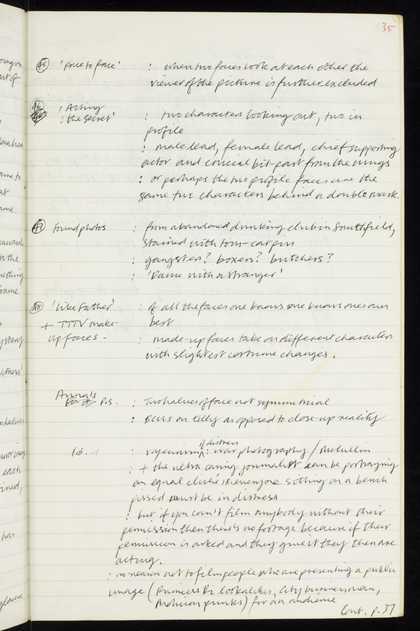 35
'face to face' : when two faces look at each other the
viewer of the picture is further excluded
'Acting
: the secret' : two characters looking out, two in
profile
: male lead, female lead, chief supporting
actor and comical bit-part from the wings
: or perhaps the two profile faces are the
same two characters behind a double mask.
found photos : from abandoned drinking club in Smithfield,
stained with
: gangsters? boxers? butchers?
: 'Dance with a stranger'
: of all the faces one knows one knows ones own
best
+ TTTV make-
up faces. : made-up faces take on different characters
with slightest costume changes.
Animals
P.S. : Two halves of face not symmetrical
: Focus on telly as opposed to close-up reality
: voyeurism of distress: war photography / McCullin
: + the ultra caring journalist can be portraying
an equal cliché ie everyone sitting on a bench
pissed must be in distress
: but if you can't film anybody without their
permission then there's no footage because if their
permission is asked and they give it they then are
acting.
: no reason not to film people who are presenting a public
image (                city businessmen,
               punks) for an audience
Cont. p.37